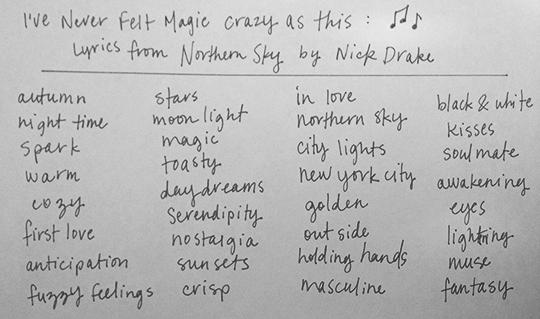 I've Never Felt Magic crazy as this:
Lyrics from Northern Sky by Nick Drake
autumn
night time
spark
warm
cozy
first love
anticipation
fuzzy feelings
stars
moon light
magic
toasty
daydreams
Serendipity
nostalgia
sunsets
crisp
in love
northern sky
city lights
new york city
golden
out side
holding hands
masculine
black & white
kisses
soulmate
awakening
eyes
lightning
muse
fantasy